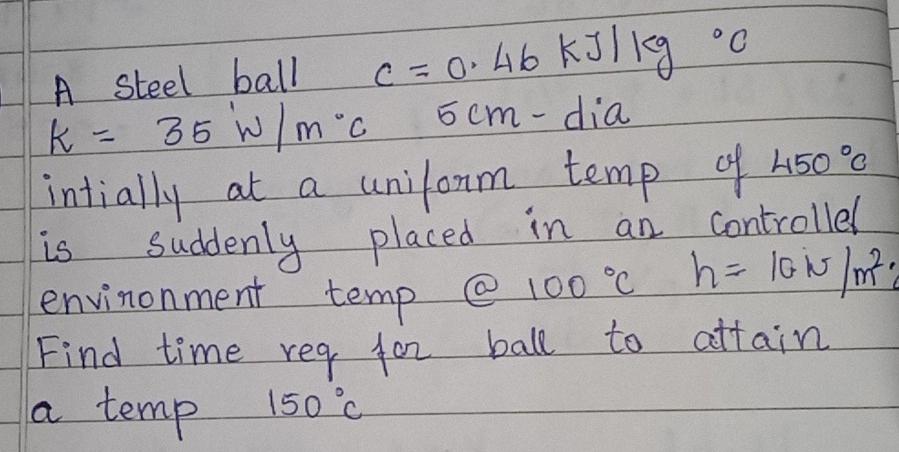 A Steel ball c = 0.46 KJ/kg °C
k = 35 W/m°C 5cm - dia
intially at a uniform temp of 450°C
is suddenly placed in an controlled
environment temp @ 100°C h = 10 W/m²·
Find time req for ball to attain
a temp 150°C